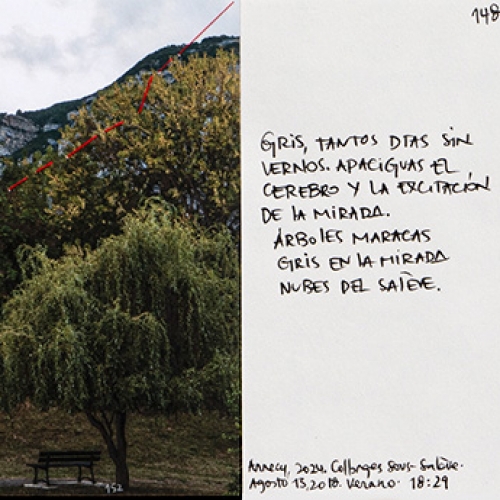 148
GRIS, TANTOS DIAS SIN
VERNOS. APACIGUAS EL
CEREBRO Y LA EXCITACIÓN
DE LA MIRADA.
ÁRBOLES MARACAS
GRIS EN LA MIRADA
NUBES DEL SALÈVE.
Annecy, 2024. Collonges Sous-Salève.
Agosto 15, 2018. Verano. 18:29
152